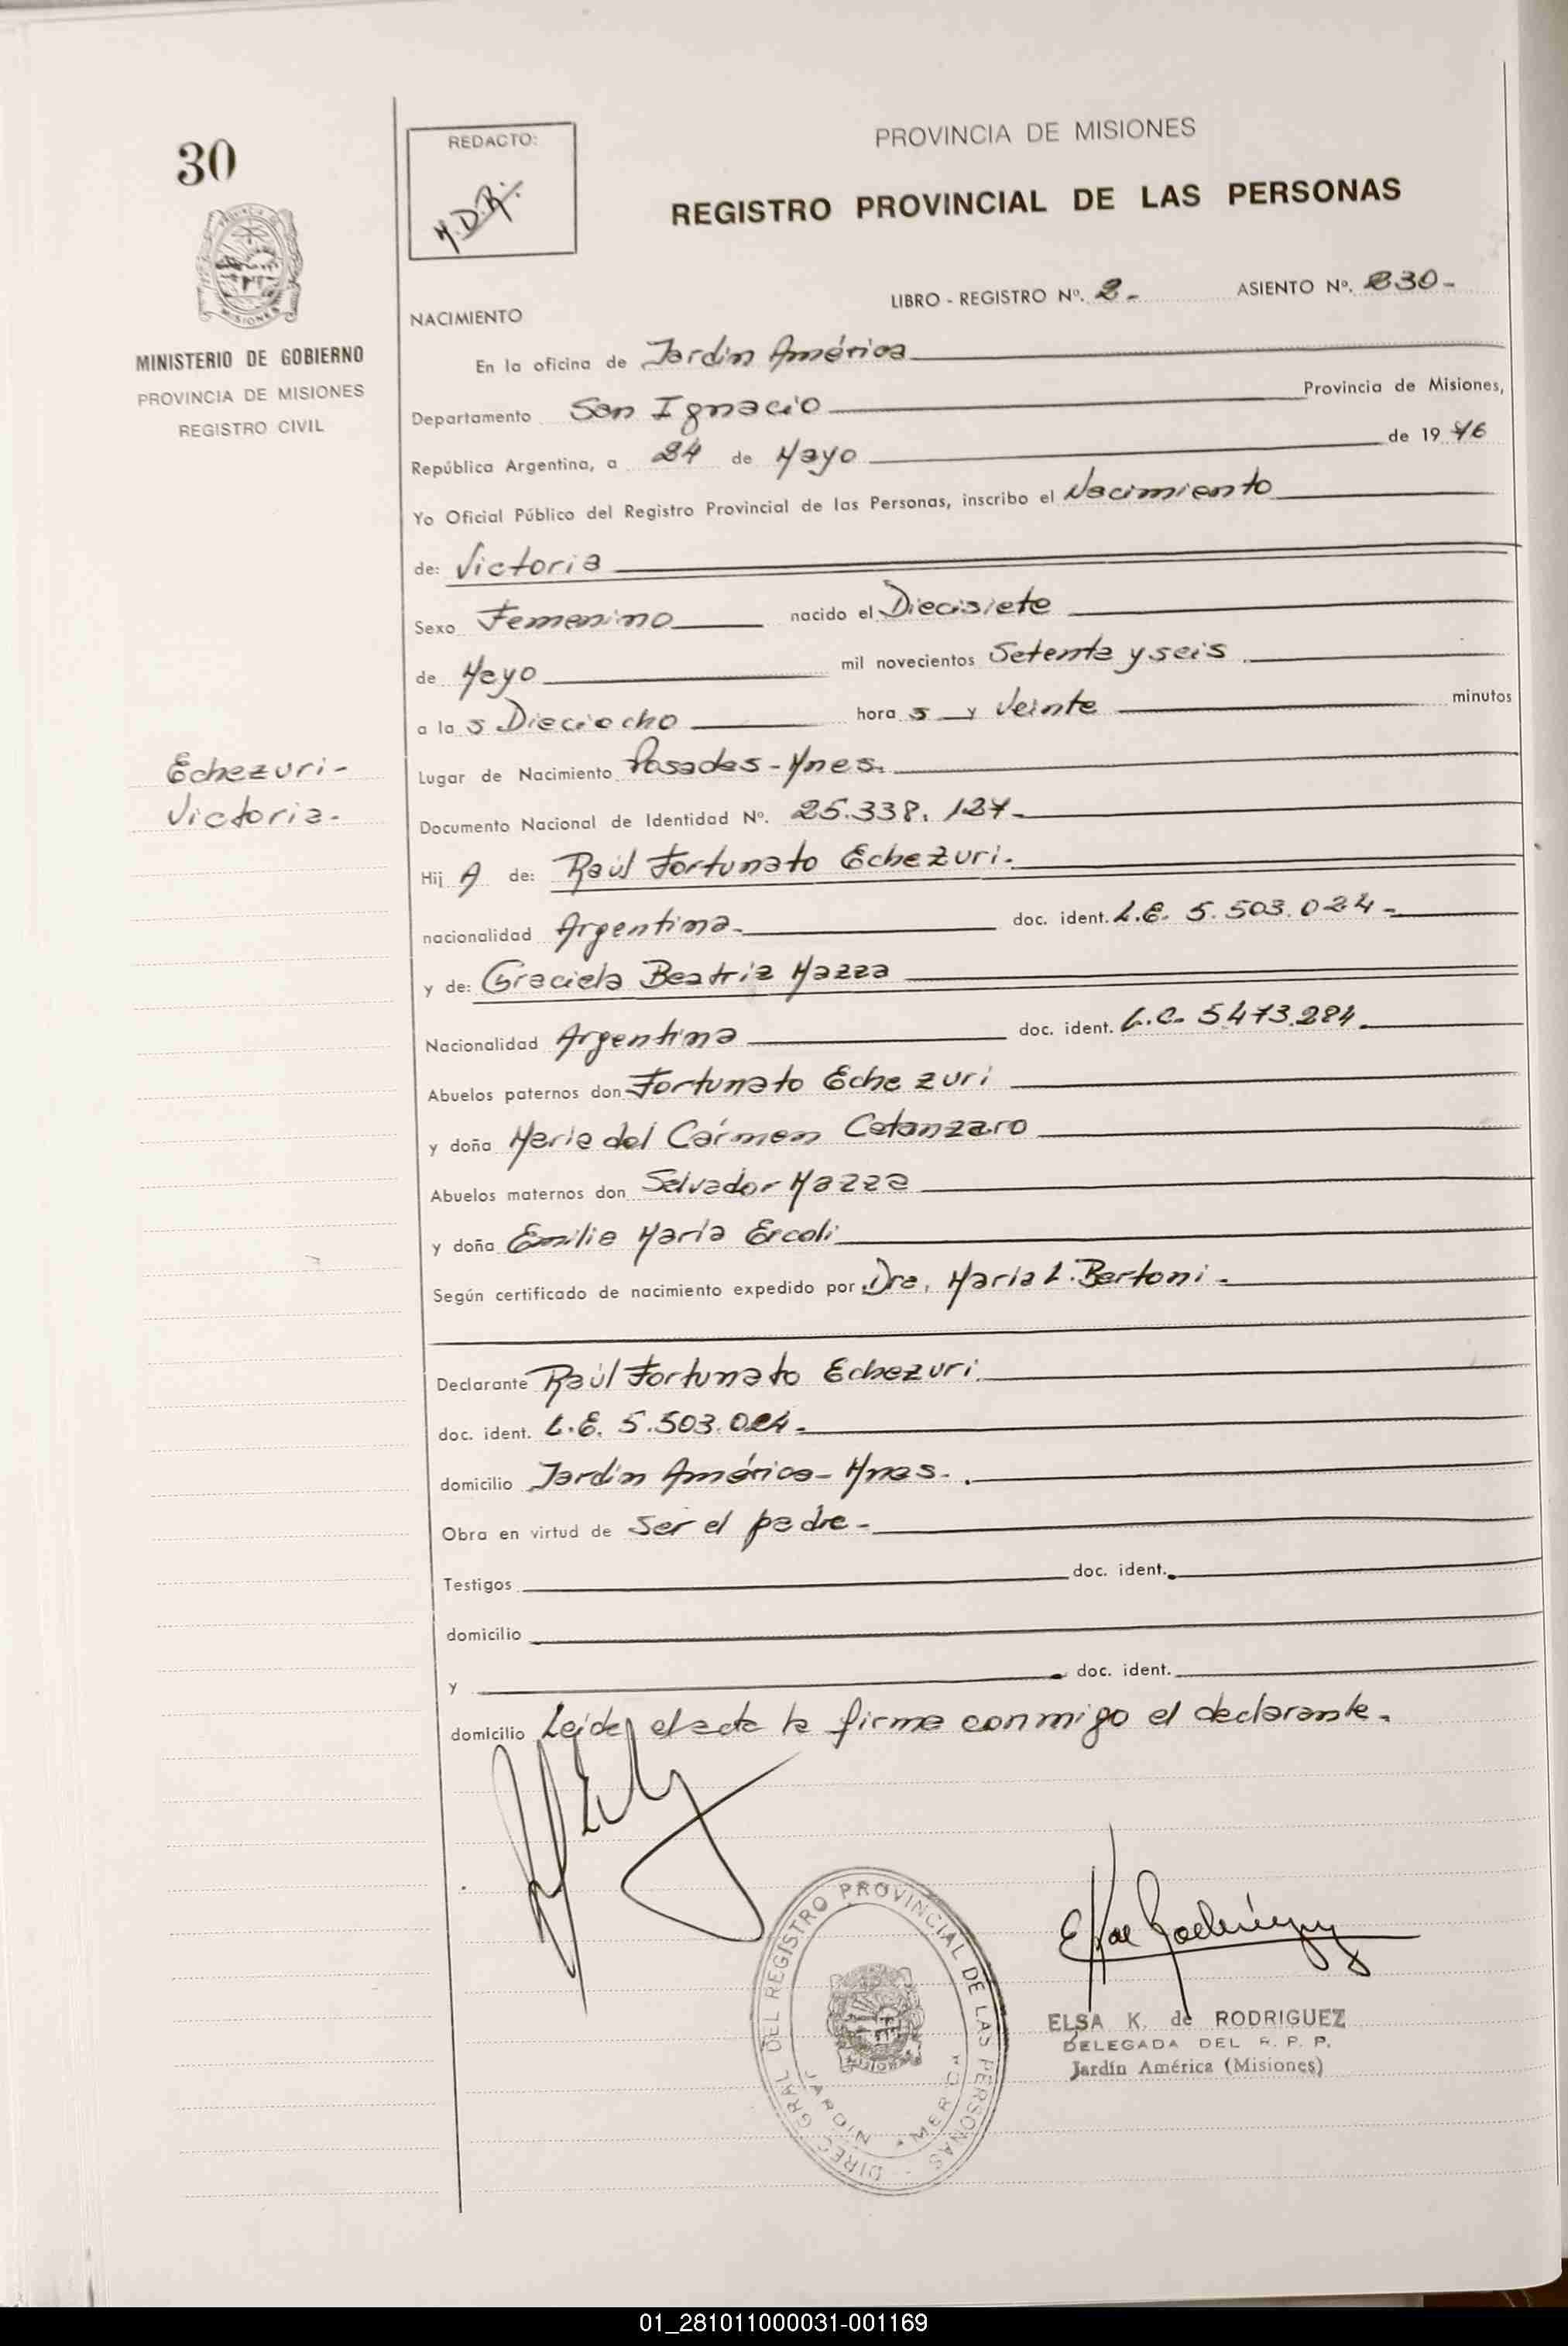 30
REDACTO:
M.D.R.
PROVINCIA DE MISIONES
REGISTRO PROVINCIAL DE LAS PERSONAS
MISIONES
MINISTERIO DE GOBIERNO
PROVINCIA DE MISIONES
REGISTRO CIVIL
NACIMIENTO
LIBRO - REGISTRO Nº. 2- ASIENTO Nº. 830-
En la oficina de Jardín América
Departamento San Ignacio Provincia de Misiones,
República Argentina, a 24 de Mayo de 1976
Yo Oficial Público del Registro Provincial de las Personas, inscribo el Nacimiento
de: Victoria
Sexo Femenino nacido el Diecisiete
de Mayo mil novecientos Setenta y seis
a la s Dieciocho hora s y Veinte minutos
Echezuri-
Victoria.-
Lugar de Nacimiento Posadas-Mnes.
Documento Nacional de Identidad Nº. 25.338.127-
Hij A de: Raúl Fortunato Echezuri.
nacionalidad Argentina- doc. ident. L.E. 5.503.024-
y de: Graciela Beatriz Mazza
Nacionalidad Argentina doc. ident. L.C. 5473.284
Abuelos paternos don Fortunato Echezuri
y doña María del Cármen Catanzaro
Abuelos maternos don Salvador Mazza
y doña Emilia María Ercoli
Según certificado de nacimiento expedido por Dra. María L. Bertoni-
Declarante Raúl Fortunato Echezuri.
doc. ident. L.E. 5.503.024-
domicilio Jardín América-Mnes-.
Obra en virtud de Ser el padre-
Testigos doc. ident.
domicilio
y doc. ident.
domicilio Leída el acta la firma conmigo el declarante.
DIREC. GRAL. DEL REGISTRO PROVINCIAL DE LAS PERSONAS
JARDIN AMERICA
ELSA K. de RODRIGUEZ
DELEGADA DEL R. P. P.
Jardín América (Misiones)
01_281011000031-001169